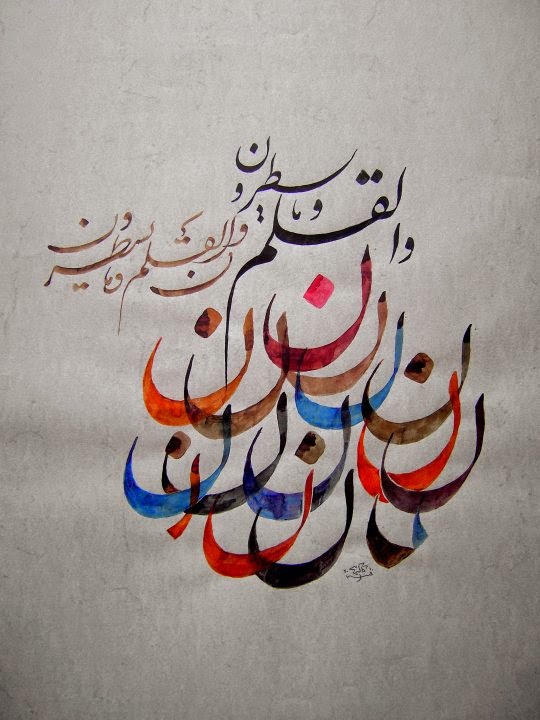 ن والقلم وما یسطرون
ن والقلم وما یسطرون
ن ن ن ن ن ن ن ن ن ن